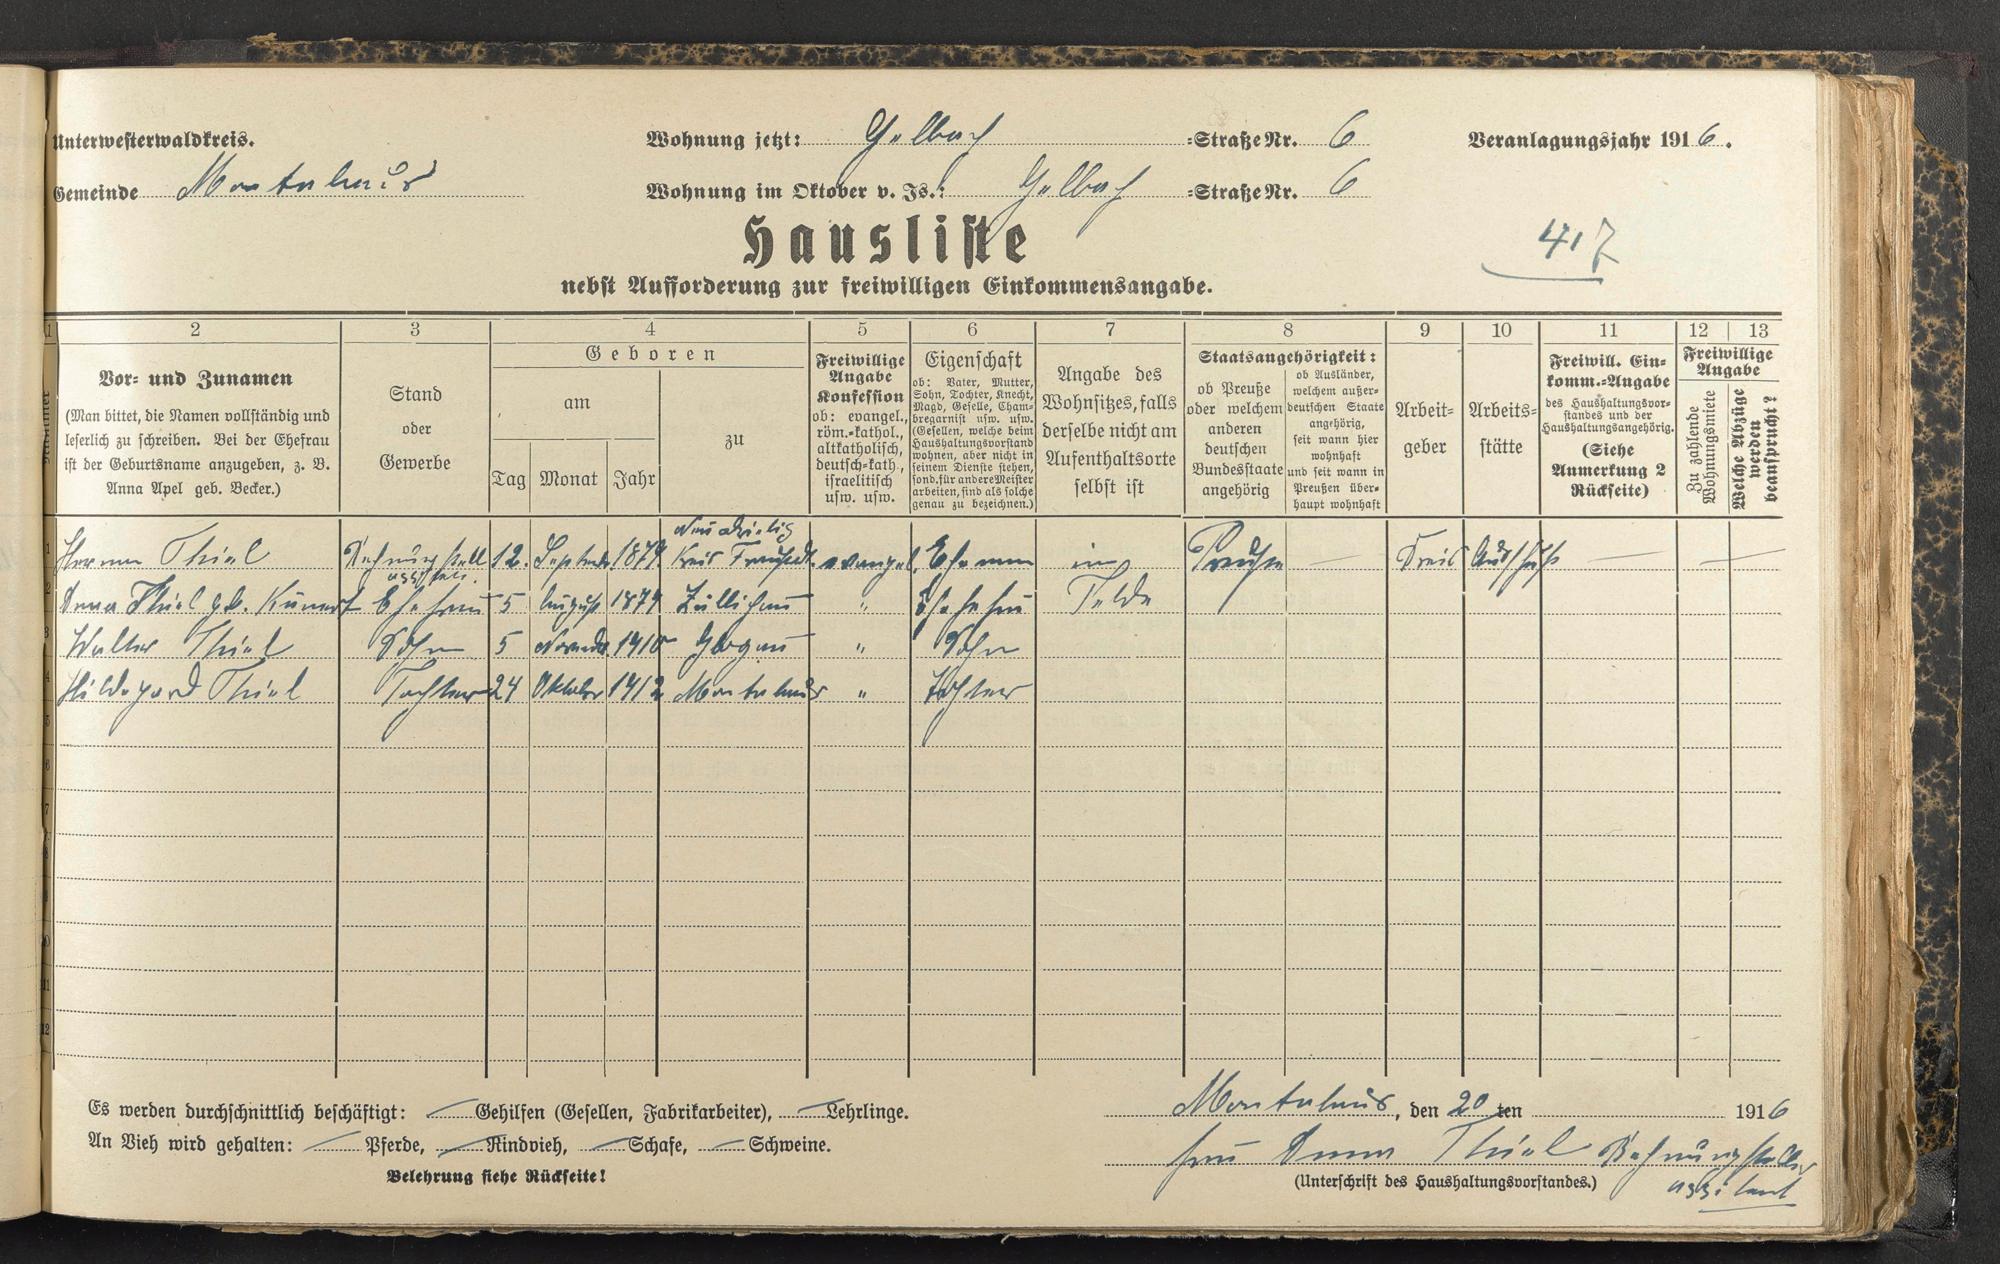 Unterwesterwaldkreis.
Wohnung jetzt: Gelbach =Straße Nr. 6
Veranlagungsjahr 1916.
Gemeinde Montabaur
Wohnung im Oktober v. Js.: Gelbach =Straße Nr. 6
Hausliste
417
nebst Aufforderung zur freiwilligen Einkommensangabe.
1 2 3 4 5 6 7 8 9 10 11 12 13
Vor- und Zunamen
(Man bittet, die Namen vollständig und
leserlich zu schreiben. Bei der Ehefrau
ist der Geburtsname anzugeben, z. B.
Anna Apel geb. Becker.)
Stand
oder
Gewerbe
Geboren
am
Tag Monat Jahr
zu
Freiwillige
Angabe
Konfession
ob: evangel.,
röm.-kathol.,
altkatholisch,
deutsch-kath.,
israelitisch
usw. usw.
Eigenschaft
ob: Vater, Mutter,
Sohn, Tochter, Knecht,
Magd, Geselle, Cham-
bregarnist usw. usw.
(Gesellen, welche beim
Haushaltungsvorstand
wohnen, aber nicht in
seinem Dienste stehen,
sond. für andere Meister
arbeiten, sind als solche
genau zu bezeichnen.)
Angabe des
Wohnsitzes, falls
derselbe nicht am
Aufenthaltsorte
selbst ist
Staatsangehörigkeit:
ob Preuße
oder welchem
anderen
deutschen
Bundesstaate
angehörig
ob Ausländer,
welchem außer-
deutschen Staate
angehörig,
seit wann hier
wohnhaft
und seit wann in
Preußen über-
haupt wohnhaft
Arbeit-
geber
Arbeits-
stätte
Freiwill. Ein-
komm.-Angabe
des Haushaltungsvor-
standes und der
Haushaltungsangehörig.
(Siehe
Anmerkung 2
Rückseite)
Freiwillige
Angabe
Zu zahlende
Wohnungsmiete
Welche Abzüge
werden
beansprucht?
1 Herman Thiel 12. Septembr. 1879 Kreis Fraustadt evangel. Ehemann im Preuße — Kreis Ausschuß — —
2 Anna Thiel geb. Kunert Ehefrau 5 August 1879 Züllichau " Ehefrau Felde
3 Walter Thiel Sohn 5 Novembr. 1910 Glogau " Sohn
4 Hildegard Thiel Tochter 24 Oktober 1912 Montabaur " Tochter
5
6
7
8
9
10
11
12
Es werden durchschnittlich beschäftigt: — Gehilfen (Gesellen, Fabrikarbeiter), — Lehrlinge.
Montabaur, den 20 ten 1916
An Vieh wird gehalten: — Pferde, — Rindvieh, — Schafe, — Schweine.
Frau Anna Thiel
Belehrung siehe Rückseite!
(Unterschrift des Haushaltungsvorstandes.)
assistent